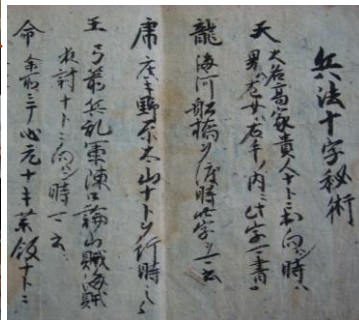 兵法十字秘術
天 大名高家貴人ナトニ出向フ時ハ
男ハ左女ハ右手ノ内ニ此字ヲ書
龍 海河船橋ヲ渡時此字ヲ
虎 広キ野原太山ナトヲ行時
王 弓箭兵乱軍陳口論山賊海賊
夜討ナトニ向フ時
命 余所ニテ心元ナキ茶飯ナトニ